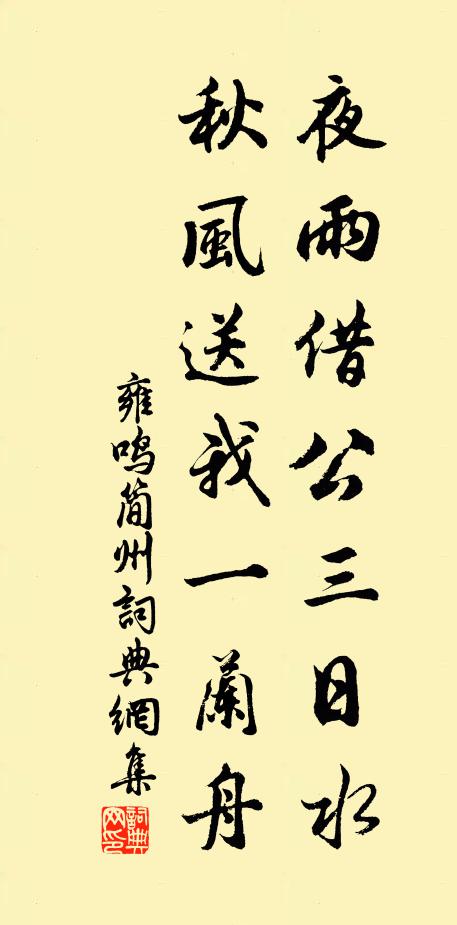 夜雨借公三日水
秋風送我一蘭舟
雍鳴簡州詞典網集
詞典網印